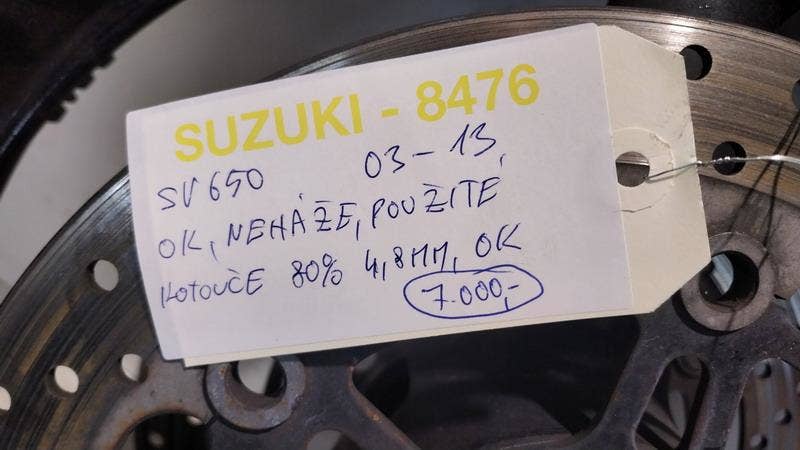 SUZUKI - 8476
SV 650 03-13
OK, NEHÁŽE, POUŽITÉ
KOTOUČE 80% 4,8MM, OK
7.000,-